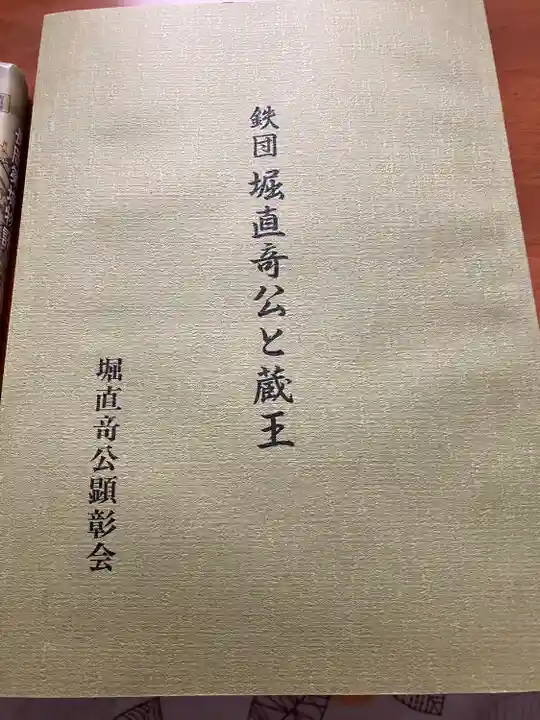 鉄団 堀直竒公と蔵王
堀直竒公顕彰会